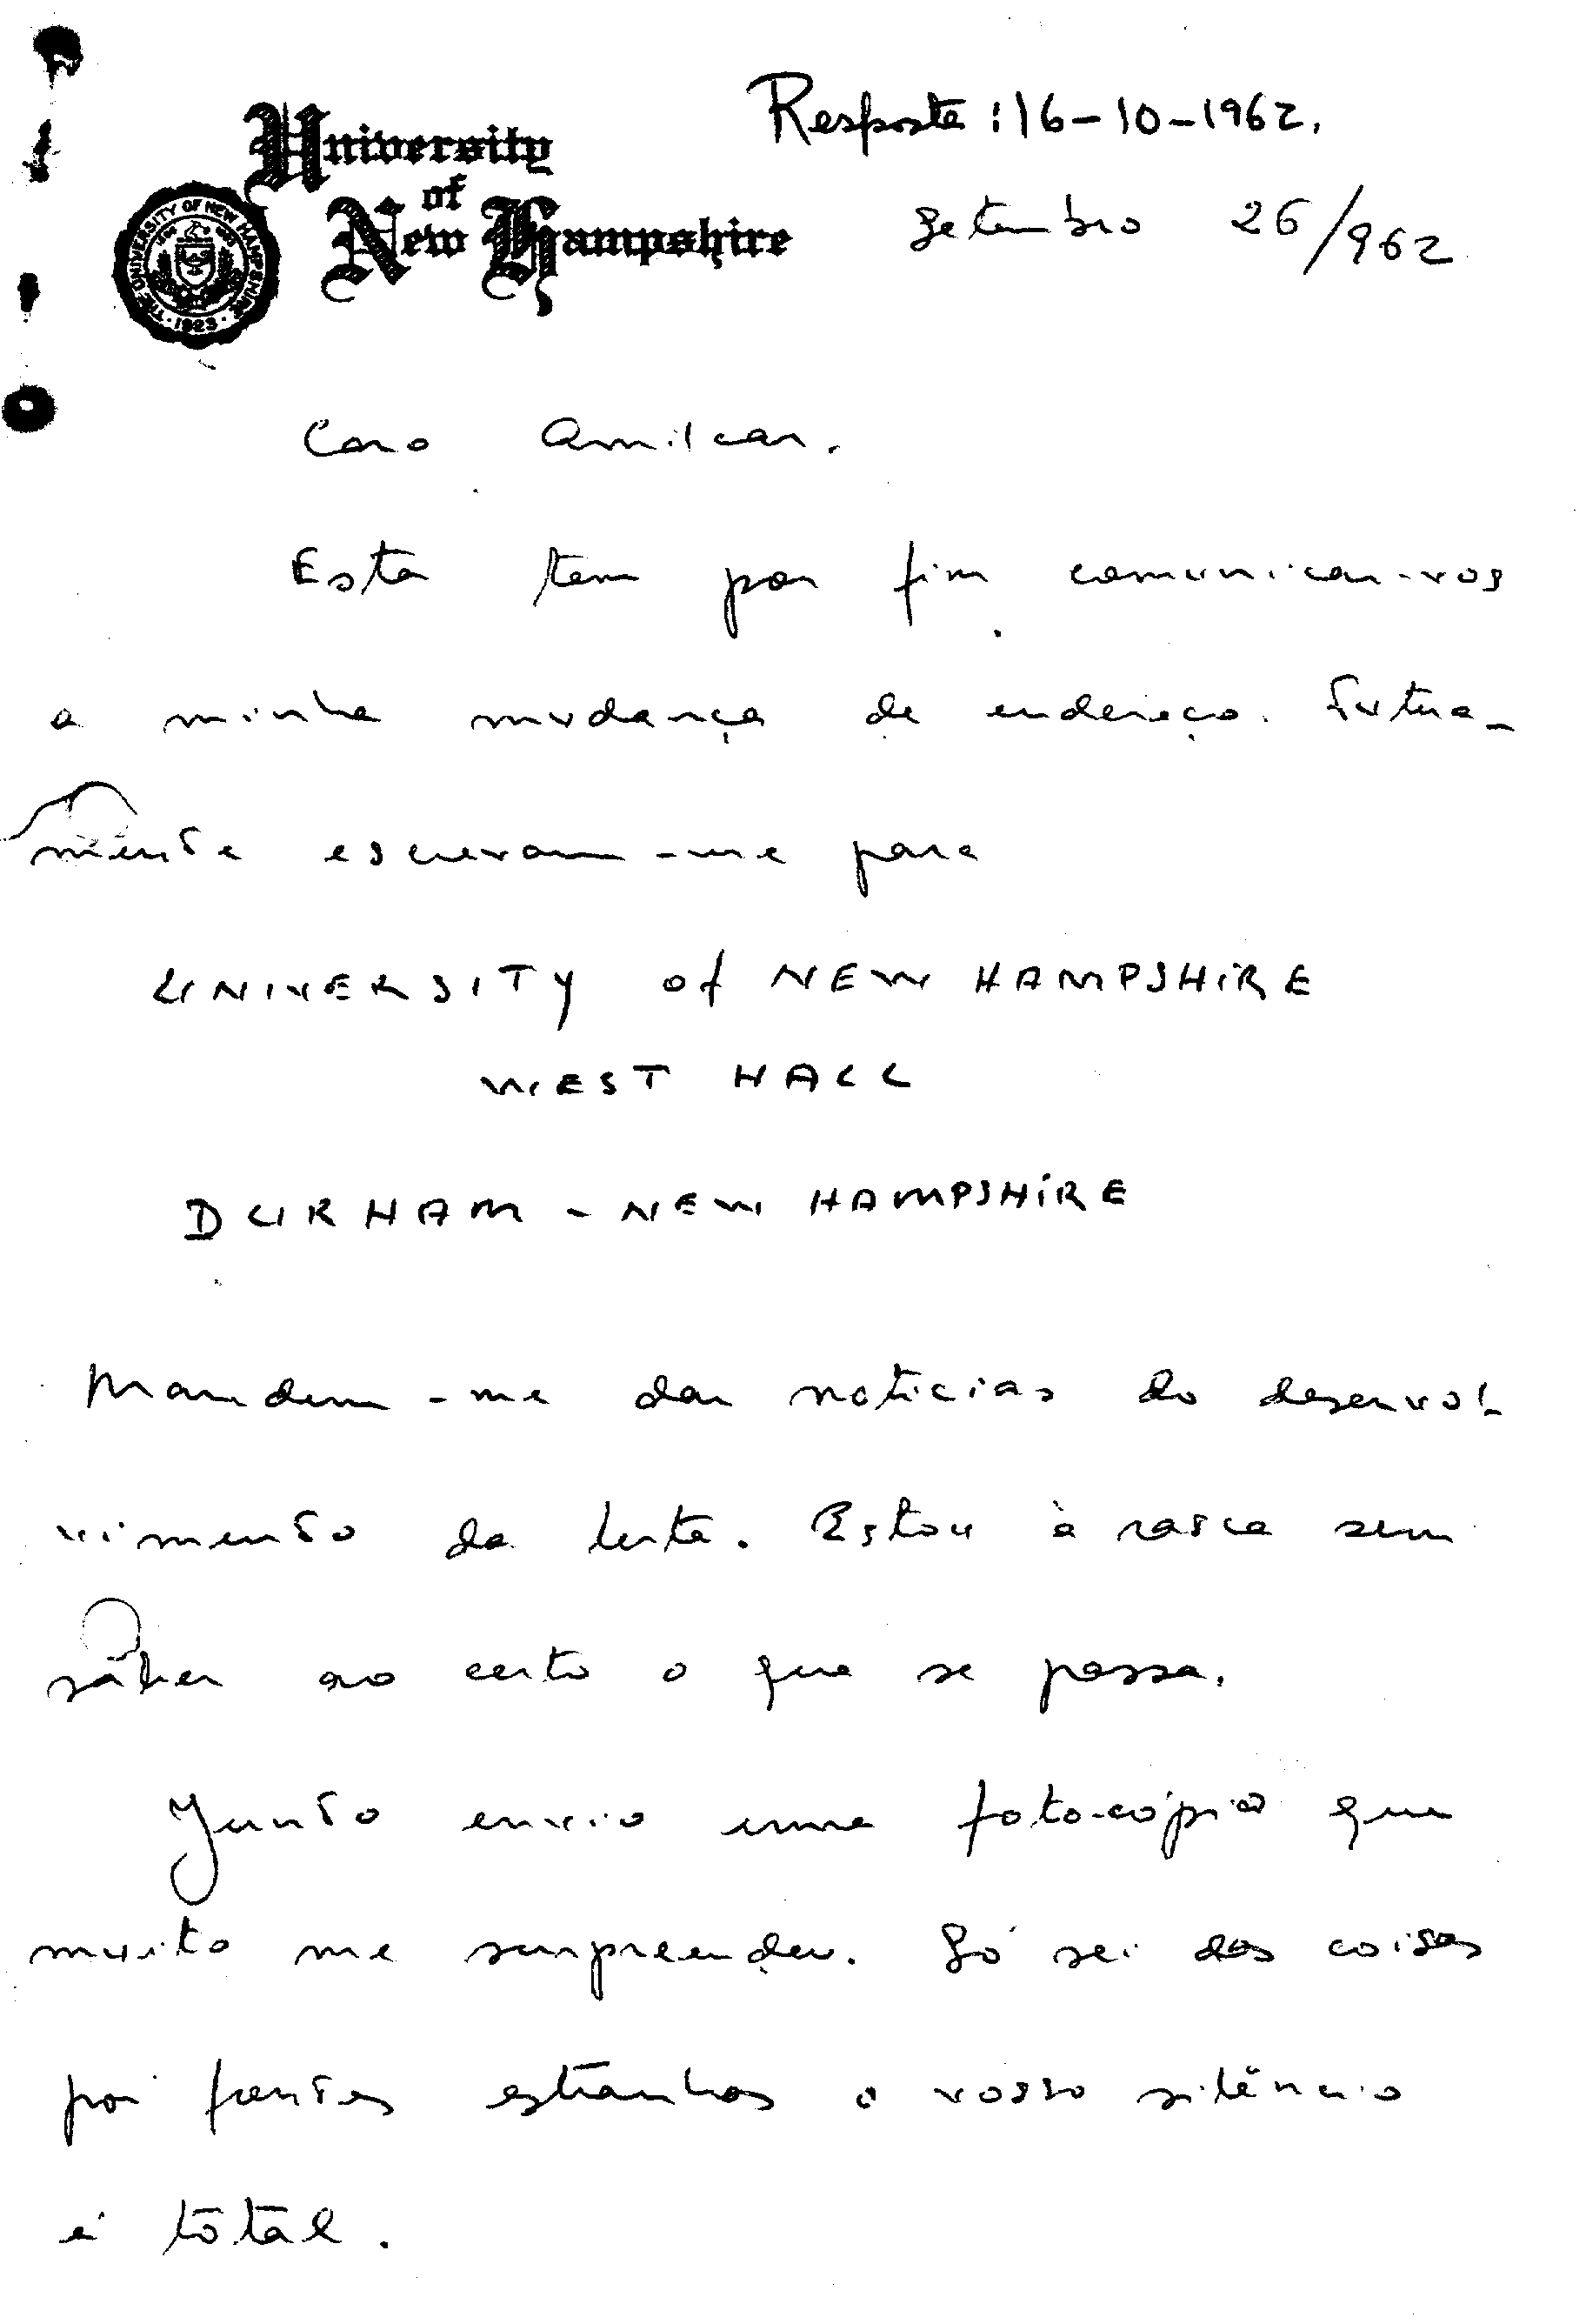 Resposta: 16-10-1962.
University
of
New Hampshire
THE UNIVERSITY OF NEW HAMPSHIRE
· 1923 ·
Setembro 26/962
Caro Amilcar.
Esta tem por fim comunicar-vos
a minha mudança de endereço. Futura-
mente escrevam-me para
UNIVERSITY of NEW HAMPSHIRE
WEST HALL
DURHAM - NEW HAMPSHIRE
Mandem-me dar noticias do desenvol-
vimento da luta. Estou à rasca sem
saber ao certo o que se passa.
Junto envio uma foto-cópia que
muito me surpreendeu. Só sei das coisas
por fontes estranhas o vosso silêncio
é total.